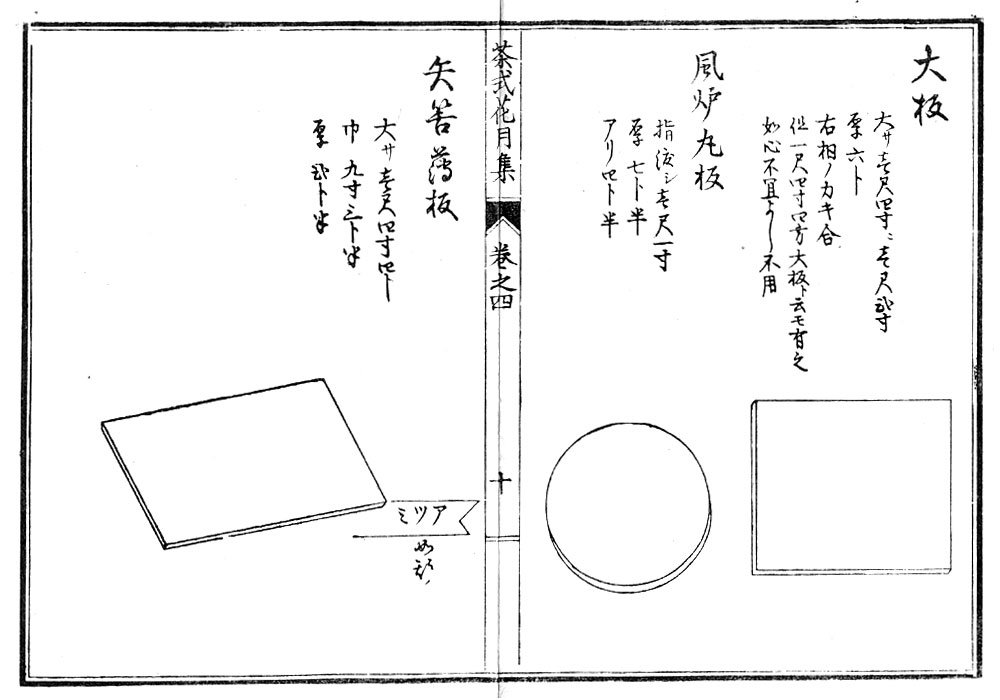 大板
大サ壱尺四寸ニ壱尺弐寸
厚六ト
右相ノカキ合
但一尺四寸四方大板ト云モ有之
如心不宜よし不用
風炉丸板
指渡シ壱尺一寸
厚七ト半
アリ四ト半
茶式花月集
巻之四
十
矢筈薄板
大サ壱尺四寸四ト
巾九寸三ト半
厚弐ト半
アツミ
如